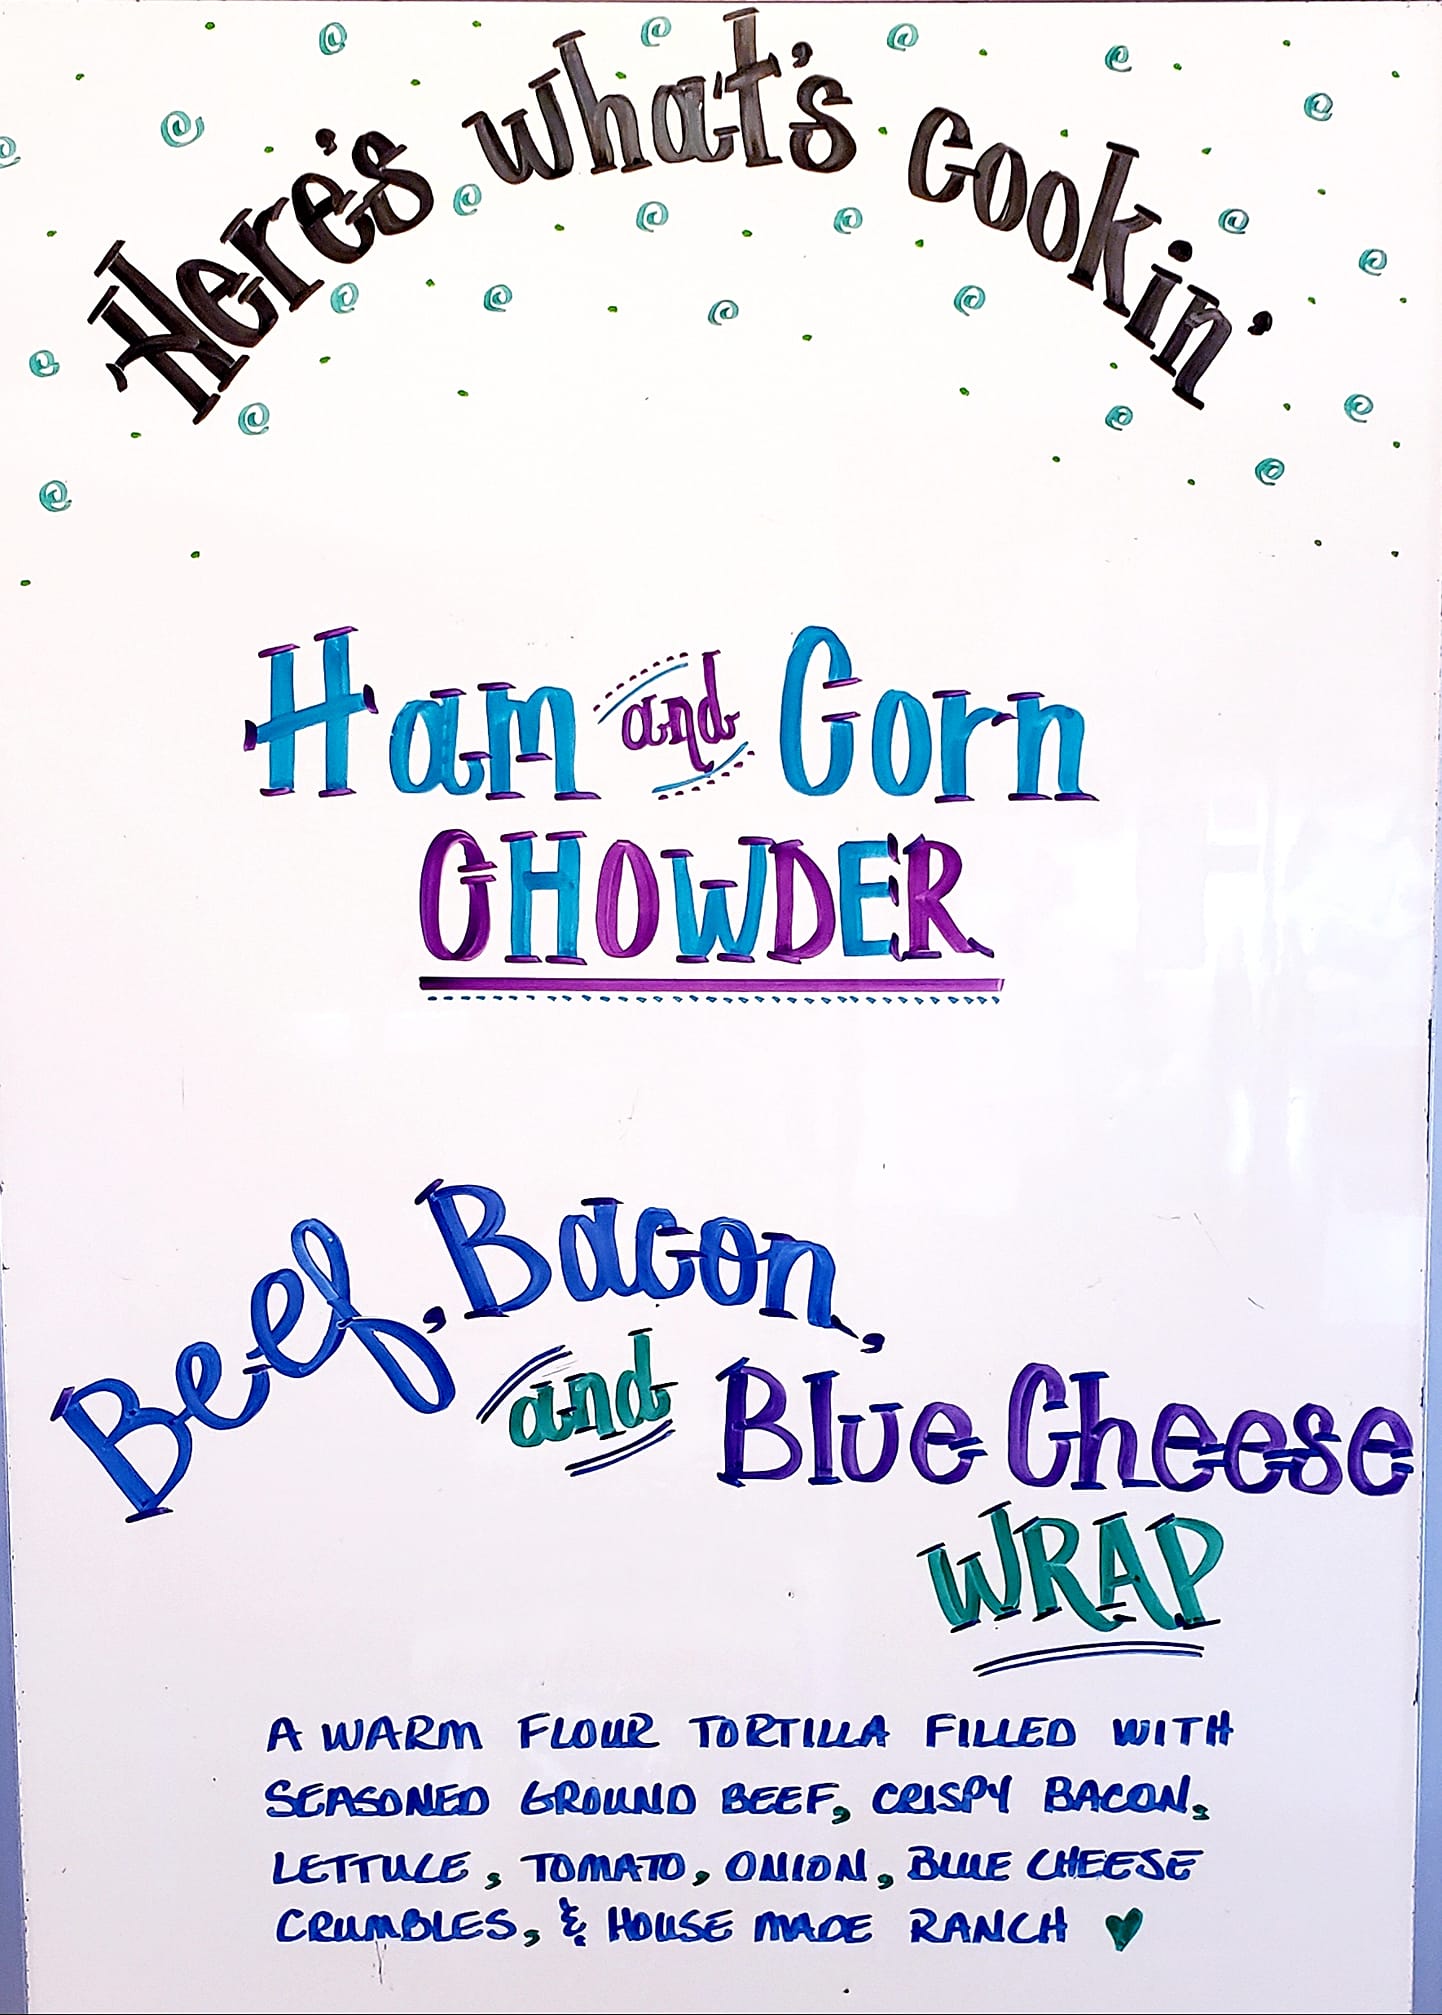 Here's what's cookin'
Ham and Corn
CHOWDER
Beef, Bacon,
and Blue Cheese
WRAP
A WARM FLOUR TORTILLA FILLED WITH
SEASONED GROUND BEEF, CRISPY BACON,
LETTUCE, TOMATO, ONION, BLUE CHEESE
CRUMBLES, & HOUSE MADE RANCH ♥